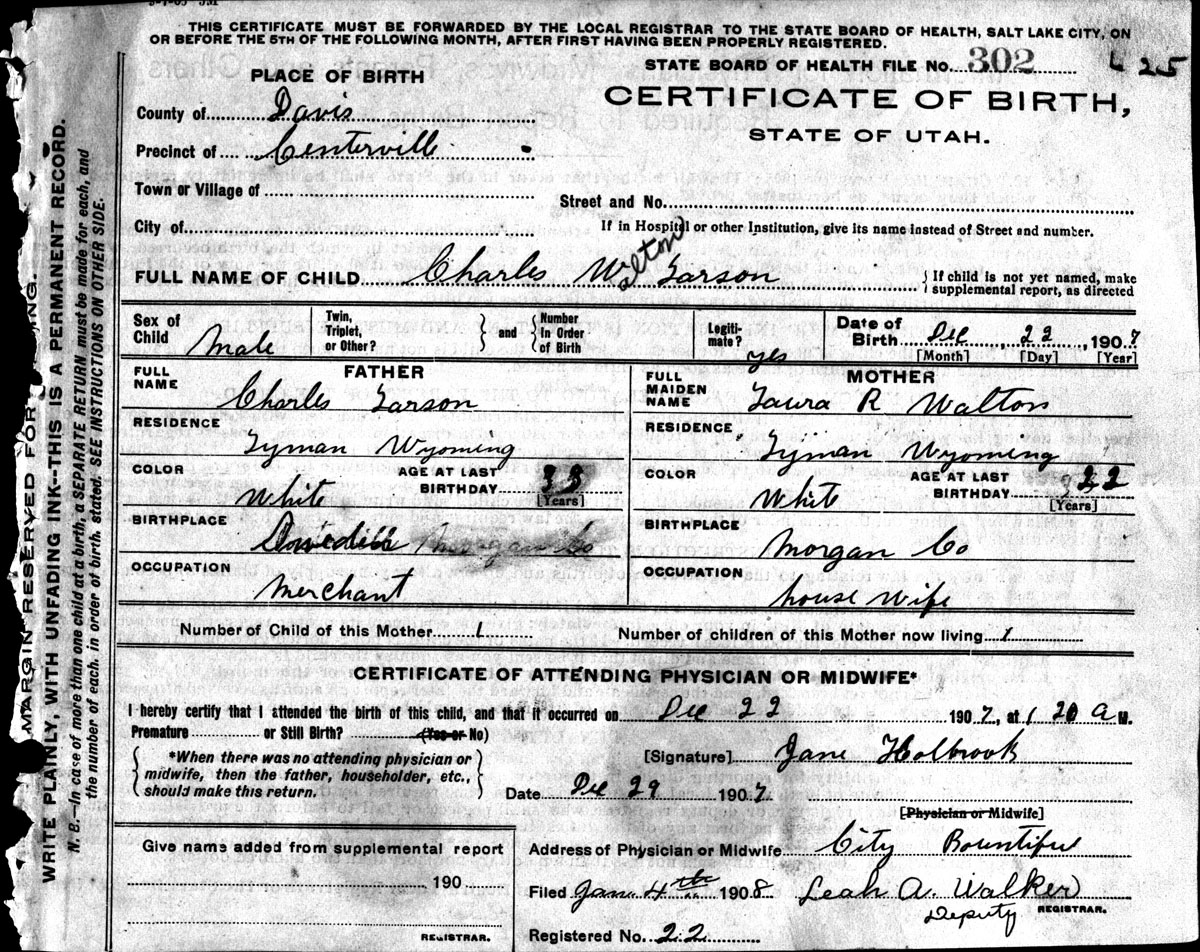 THIS CERTIFICATE MUST BE FORWARDED BY THE LOCAL REGISTRAR TO THE STATE BOARD OF HEALTH, SALT LAKE CITY, ON
OR BEFORE THE 5TH OF THE FOLLOWING MONTH, AFTER FIRST HAVING BEEN PROPERLY REGISTERED.
STATE BOARD OF HEALTH FILE NO. 302
25
PLACE OF BIRTH
CERTIFICATE OF BIRTH,
STATE OF UTAH.
County of Davis
Precinct of Centerville
Town or Village of
Street and No.
City of
If in Hospital or other Institution, give its name instead of Street and number.
FULL NAME OF CHILD Charles Wilton Larson
If child is not yet named, make supplemental report, as directed
Sex of Child Male
Twin, Triplet, or Other?
and
Number in Order of Birth
Legiti-mate? yes
Date of Birth Dec 22, 1907
[Month] [Day] [Year]
FATHER
FULL NAME Charles Larson
RESIDENCE Lyman Wyoming
COLOR White
AGE AT LAST BIRTHDAY 33 [Years]
BIRTHPLACE Morgan Co
OCCUPATION Merchant
MOTHER
FULL MAIDEN NAME Laura R Walton
RESIDENCE Lyman Wyoming
COLOR White
AGE AT LAST BIRTHDAY 22 [Years]
BIRTHPLACE Morgan Co
OCCUPATION house wife
Number of Child of this Mother 1
Number of children of this Mother now living 1
CERTIFICATE OF ATTENDING PHYSICIAN OR MIDWIFE*
I hereby certify that I attended the birth of this child, and that it occurred on Dec 22 1907, at 1 20 a M.
Premature or Still Birth? (Yes or No)
*When there was no attending physician or
midwife, then the father, householder, etc.,
should make this return.
[Signature] Jane Holbrook
Date Dec 29 1907
[Physician or Midwife]
Give name added from supplemental report
190
REGISTRAR.
Address of Physician or Midwife City Bountiful
Filed Jan. 4th 1908 Leah A. Walker
Deputy REGISTRAR.
Registered No. 22
MARGIN RESERVED FOR
WRITE PLAINLY, WITH UNFADING INK—THIS IS A PERMANENT RECORD.
N. B.—In case of more than one child at a birth, a SEPARATE RETURN must be made for each, and
the number of each, in order of birth, stated. SEE INSTRUCTIONS ON OTHER SIDE.